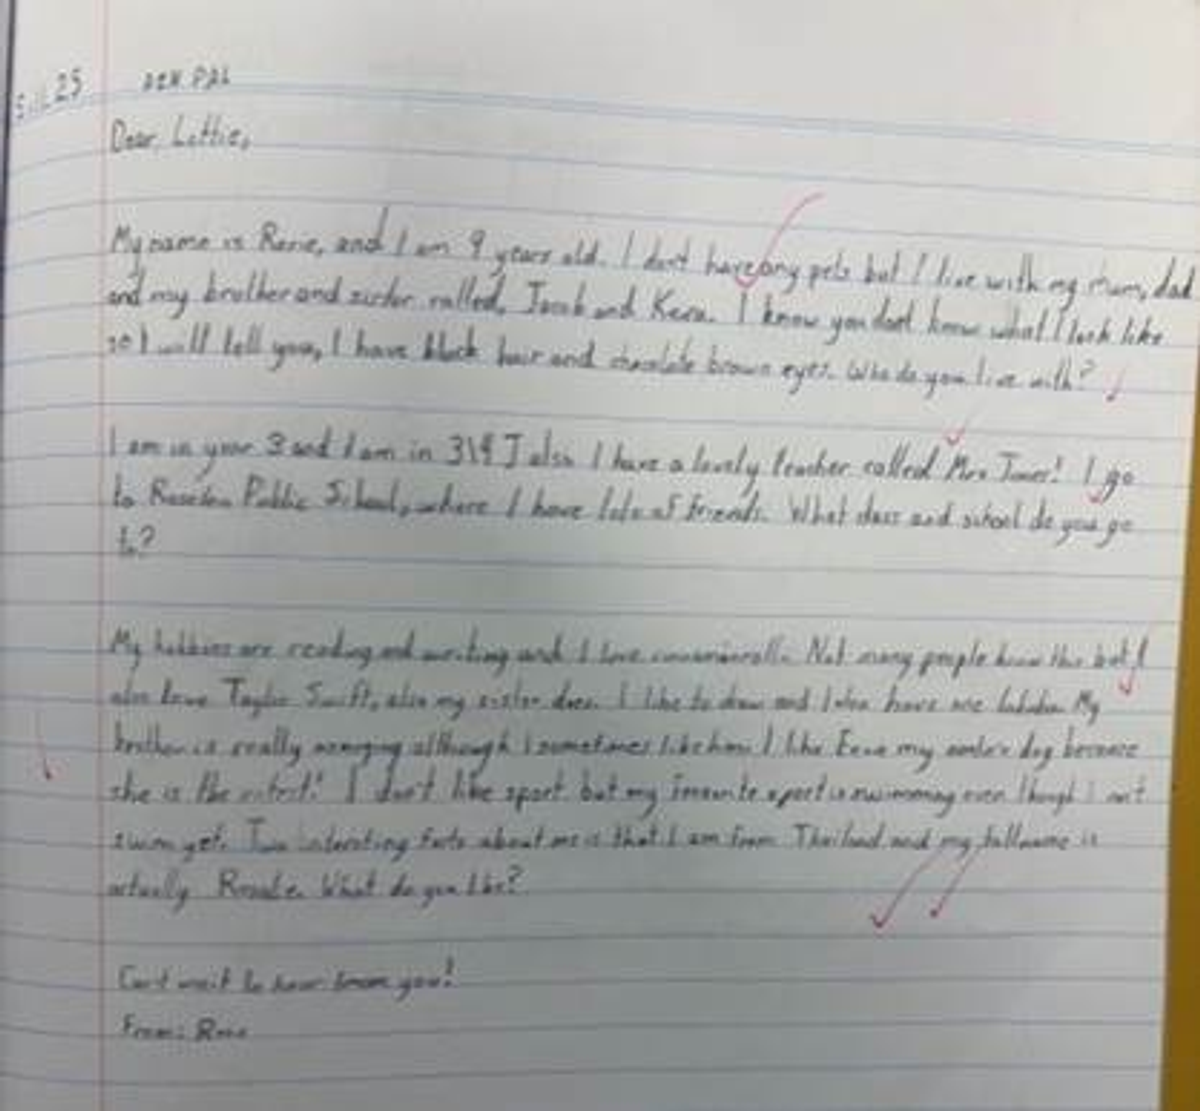 25 PEN PAL
Dear Lottie,
My name is and I am 9 years old. I don't have any pets but I live with my mum, dad
and my brother and sister called, Jacob and I know you dont know what I look like
so I will tell you, I have black hair and chocolate brown eyes. Who do you live with?
I am in year 3 and I am in also I have a lovely teacher called Mrs I go
to Public School, where I have lots of friends. What class and school do you go
to?
My hobbies are reading and writing and I love Not many people know this but I
also love Taylor Swift, also my sister does. I like to draw and I also have one My
brother is really annoying although I sometimes like him. I like my dog because
she is the cutest! I don't like sport but my favourite sport is swimming even though I can't
swim yet. Two interesting facts about me is that I am from Thailand and my fullname is
actually What do you like?
Can't wait to hear from you!
From: